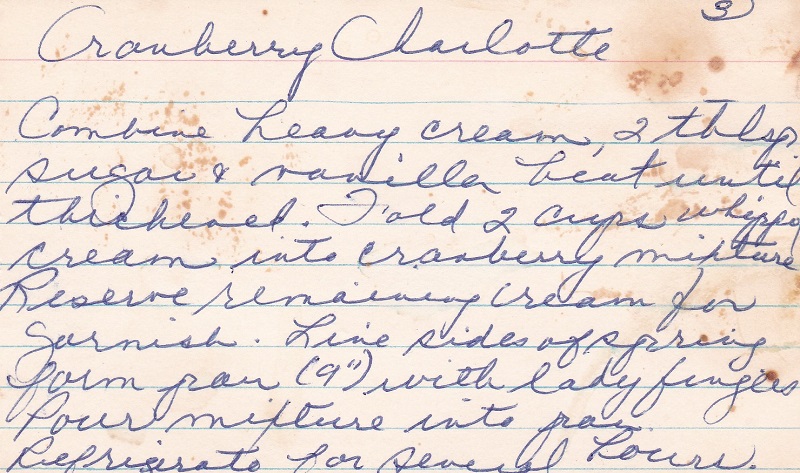 3
Cranberry Charlotte
Combine heavy cream, 2 tblsp
sugar & vanilla beat until
thickened. Fold 2 cups whipped
cream into cranberry mixture
Reserve remaining cream for
garnish. Line sides of spring
form pan (9") with lady fingers
Pour mixture into pan.
Refrigerate for several hours.